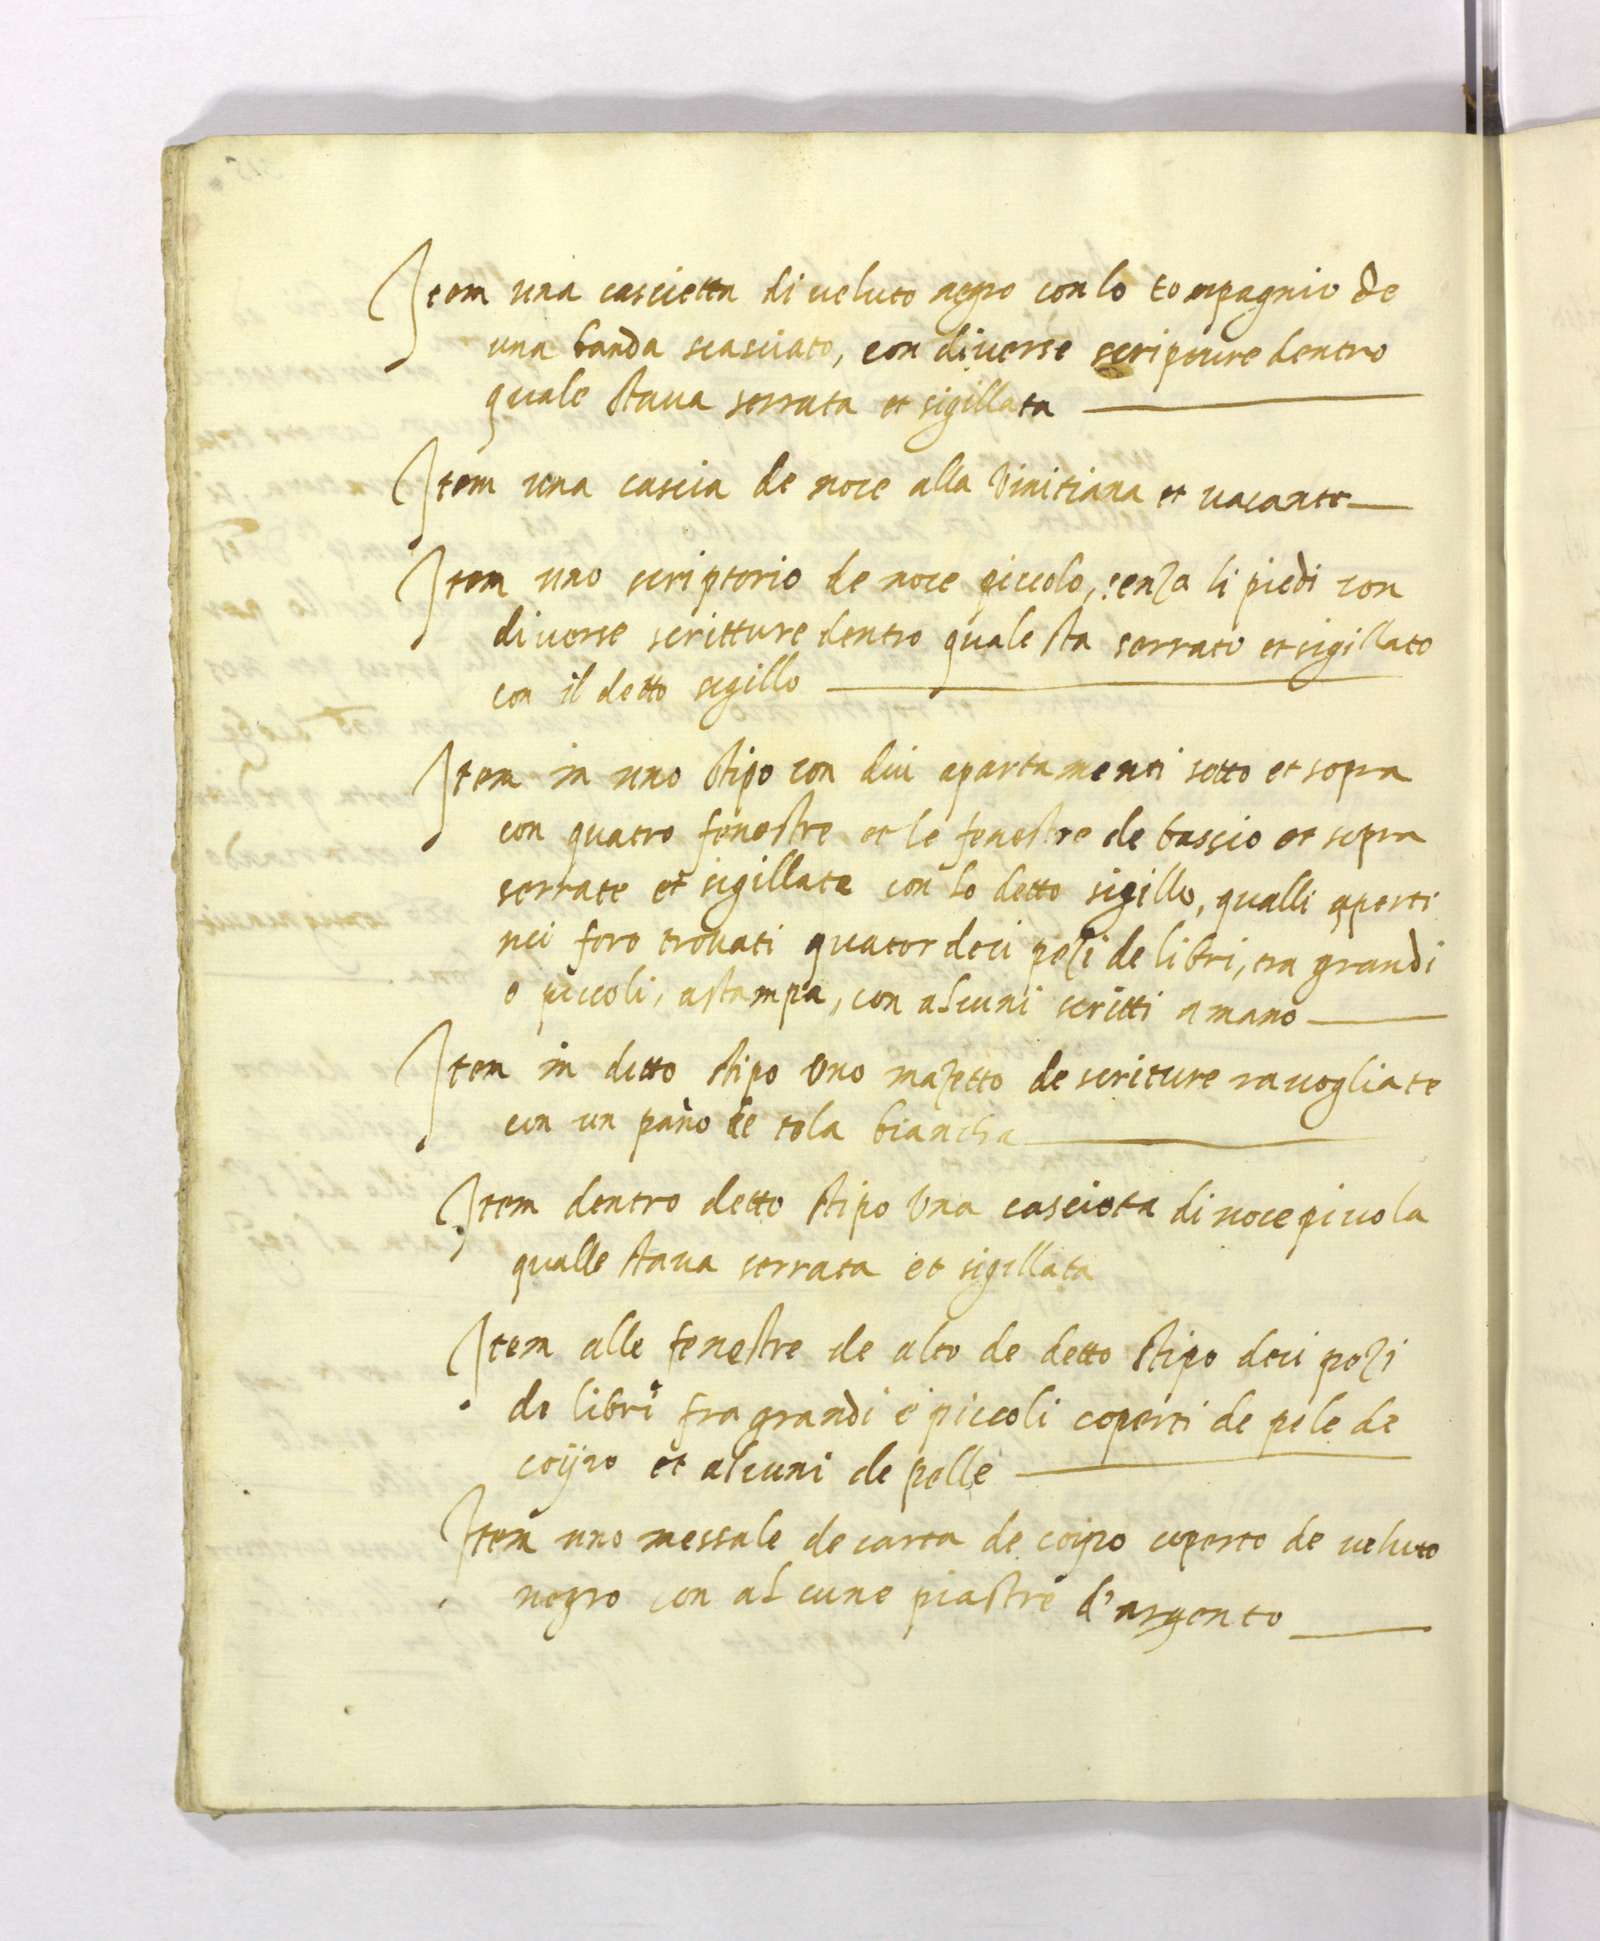 Item una cascietta di veluto negro con lo tompagnio de
una banda scasciato, con diverse scripture dentro
quale stava serrata et sigillata
Item una cascia de noce alla Vinitiana et vacante
Item uno scriptorio de noce piccolo, senza li piedi con
diverse scritture dentro quale sta serrato et sigillato
con il detto sigillo
Item in uno stipo con dui apartamenti sotto et sopra
con quatro fenestre et le fenestre de bascio et sopra
serrate et sigillate con lo detto sigillo, qualli aperti
nci foro trovati quatordeci pezi de libri, tra grandi
e piccoli, astampa, con alcuni scritti amano
Item in detto stipo uno mazetto de scriture ravogliate
con un pano de tela biancha
Item dentro detto stipo una casciota di noce picola
qualle stava serrata et sigillata
Item alle fenestre de alto de detto stipo deci pezi
de libri fra grandi e piccoli coperti de pele de
coijro et alcuni de pelle
Item uno messale de carta de coijro coperto de veluto
negro con alcune piastre d'argento